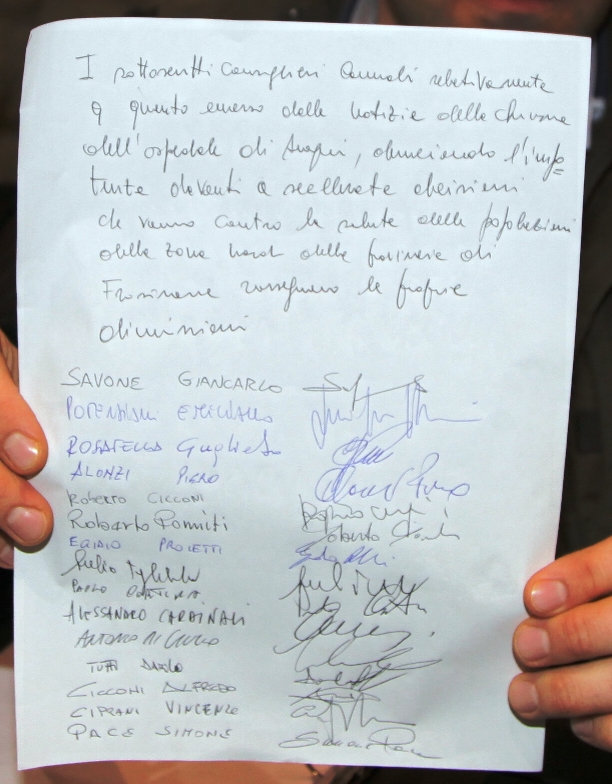 I sottoscritti Consiglieri Comunali relativamente
a quanto emerso dalle notizie della chiusura
dell'ospedale di Anagni, denunciando l'impo
tenza davanti a scellerate decisioni
che vanno contro la salute delle popolazioni
della zona nord della provincia di
Frosinone rassegnano le proprie
dimissioni
SAVONE GIANCARLO
EMILIANO
ROSATELLA Guglielmo
ALONZI PIERO
ROBERTO CICCONI
Roberto Pomiti
EGIDIO PROIETTI
ALESSANDRO CARDINALI
ANTONIO
TUFI
CICCONI ALFREDO
CIPRANI VINCENZO
PACE SIMONE